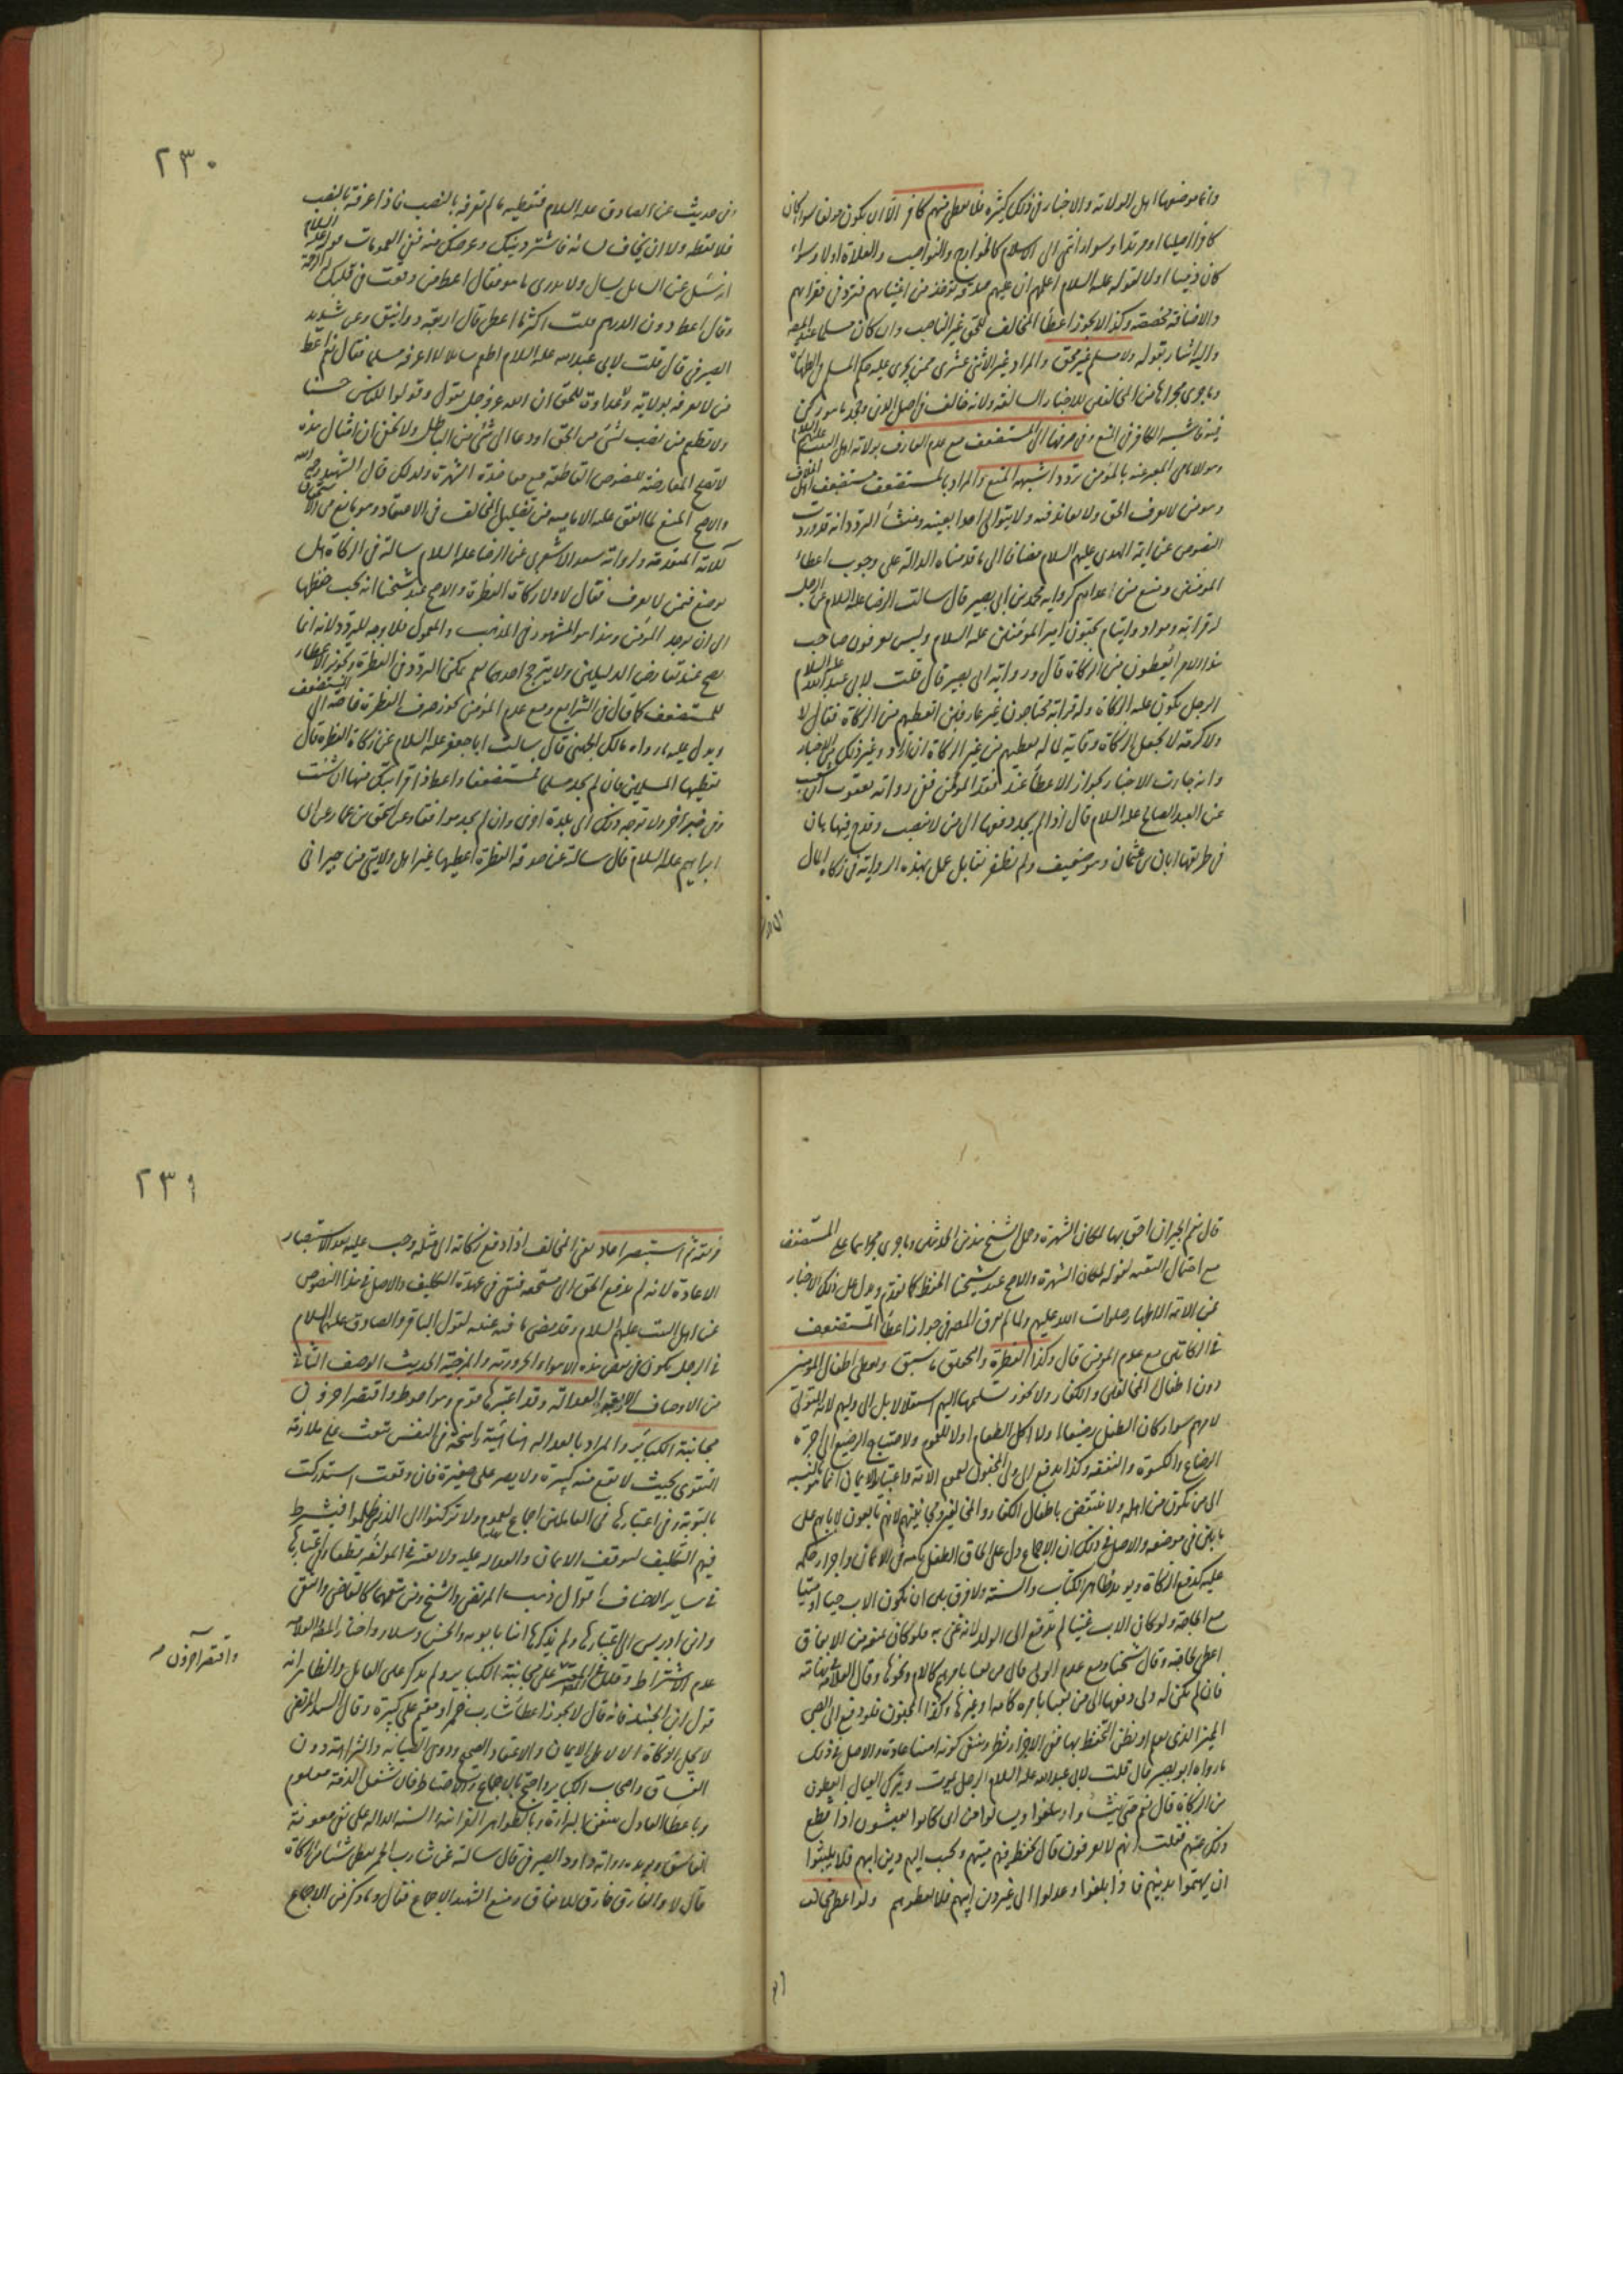 وانما موضعها اهل الولاية والاخبار في ذلك كثيرة فلا يعطى منهم كافر الا ان يكون مولفا سواء كان
كافرا اصليا او مرتدا وسواء انتمى الى الاسلام كالخوارج والنواصب والغلاة اولا وسواء
كان ذميا اولا لقوله عليه السلام اعلمهم ان عليهم صدقة توخذ من اغنيائهم فترد في فقرائهم
والاضافة مخصصة وكذا لا يجوز اعطاء المخالف للحق غير الناصب وان كان مسلما عند المص
واليه اشار بقوله ولا مسلم غير محق والمراد غير الاثنى عشرى ممن يجرى عليه حكم المسلم في الطهارة
وما جرى مجراها من المخالفين للاخبار السالفة ولانه خالف في اصل الدين وجحد ما هو ركن
فيه فاشبه الكافر في المنع وفي صرفها الى المستضعف مع عدم العارف بولاية اهل البيت عليهم السلام
وهو الامامي المعبر عنه بالمؤمن تردد اشبهه المنع والمراد بالمستضعف مستضعف اهل الخلاف
وهو من لا يعرف الحق ولا يعاند فيه ولا يتوالى احدا بعينه ومنشأ التردد انه قد وردت
النصوص عن ائمة الهدى عليهم السلام مضافا الى ما قدمناه الدالة على وجوب اعطاء
المؤمنين ومنع من عداهم كرواية محمد بن ابي بصير قال سالت الرضا عليه السلام عن الرجل
له قرابة وموال وايتام يحبون امير المؤمنين عليه السلام وليس يعرفون صاحب
هذا الامر ايعطون من الزكاة قال ورواية ابي بصير قال قلت لابي عبد الله عليه السلام
الرجل يكون عليه الزكاة وله قرابة محتاجون غير عارفين ايعطيهم من الزكاة فقال لا
ولا كرامة لا يجعل الزكاة وقاية لماله يعطيهم من غير الزكاة ان اراد وغير ذلك من الاخبار
وانه جاءت الاخبار بجواز الاعطاء عند فقد المؤمن ففي رواية يعقوب بن شعيب
عن العبد الصالح عليه السلام قال اذا لم يجد دفعها الى من لا ينصب وقدح فيها بان
في طريقها ابان بن عثمان وهو ضعيف ولم نظفر بقائل عمل بهذه الرواية في زكاة المال
٢٣٠
وفي حديث عن الصادق عليه السلام فتعطيه ما لم تعرفه بالنصب فاذا عرفته بالنصب
فلا تعطه ولا ان يخاف لسانه فاشتر دينك وعرضك منه ففي العمومات قوله عليه السلام
انه سئل عن السائل يسال ولا يدرى ما هو فقال اعط من وقعت في قلبك له الرحمة
وقال اعط دون الدرهم قلت اكثر ما اعطى قال اربعة دوانيق وعن شديد
الصيرفي قال قلت لابي عبد الله عليه السلام اطعم سائلا لا اعرفه مسلما فقال نعم اعط
من لا تعرفه بولاية ولا عداوة للحق ان الله عز وجل يقول وقولوا للناس حسنا
ولا تطعم من نصب لشئ من الحق او دعا الى شئ من الباطل ولا يخفى ان امثال هذه
لا تصلح لمعارضة النصوص القاطعة مع معاضدة الشهرة ولذلك قال الشهيد رحمه الله
والاصح المنع لما اتفق عليه الامامية من تضليل المخالف في الاعتقاد وهو مانع من الاستحقاق
للآية المتقدمة ولرواية سعد الاشعرى عن الرضا عليه السلام سالته عن الزكاة هل
توضع فيمن لا يعرف فقال لا ولا زكاة الفطرة والاصح عند شيخنا انه يجب حفظها
الى ان يوجد المؤمن وهذا هو المشهور في المذهب والمعمول فلا وجه للتردد لانه انما
يصح عند تعارض الدليلين ولا يترجح احدهما نعم يمكن التردد في الفطرة وتجويز الاعطاء
للمستضعف كما قال في الشرايع ومع عدم المؤمن يجوز صرف الفطرة خاصة الى المستضعف
ويدل عليه ما رواه مالك الجهني قال سالت ابا جعفر عليه السلام عن زكاة الفطرة قال
تعطيها المسلمين فان لم تجد مسلما فمستضعفا واعط ذا قرابتك منها ان شئت
وفي خبر اخر ولا توجه ذلك الى بلدة اخرى وان لم يجد موافقا وعن اسحق بن عمار عن ابي
ابراهيم عليه السلام قال سالته عن صدقة الفطرة اعطيها غير اهل ولايتي من جيراني
قال نعم الجيران احق بها لمكان الشهرة وحمل الشيخ هذين الحديثين وما جرى مجراهما على المستضعف
مع احتمال التقية لقوله لمكان الشهرة والاصح عند شيخنا الحفظ كما تقدم ويدل على ذلك الاخبار
عن الائمة الاطهار صلوات الله عليهم ولما لم يفرق المص في جواز اعطاء المستضعف
في الزكاتين مع عدم المؤمن قال وكذا الفطرة والمحقق ما سبق ويعطى اطفال المؤمنين
دون اطفال المخالفين والكفار ولا يجوز تسليمها اليهم استقلالا بل الى وليهم لانه المتولى
لامرهم سواء كان الطفل رضيعا ولا اكل الطعام اولا للعموم ولاحتياج الرضيع الى اجرة
الرضاع والكسوة والنفقة وكذا يدفع الى ولى المجنون لعموم الاية واعتبار الايمان انما هو بالنسبة
الى من يكون من اهله ولا ينتقض باطفال الكفار والمخالفين ومجانينهم لانهم تابعون لابائهم على
ما بين في موضعه والاصل في ذلك ان الاجماع دل على الحاق الطفل بابيه في الايمان واجراء حكمه
عليه كدفع الزكاة ويؤيده ظاهر الكتاب والسنة ولا فرق بين ان يكون الاب حيا او ميتا
مع الحاجة ولو كان الاب غنيا لم تدفع الى الولد لانه غنى به فلو كان ممنوع من الانفاق
اعطى لحاجته وقال شيخنا ومع عدم الولى قال من يعنا بامرهم كالام ونحوها وقال العلامة في نهايته
فان لم يكن له ولى دفعها الى من يعتنى بامره كامه او غيرها وكذا المجنون فلو دفع الى الصبى
المميز الذى يعلم او يظن التحفظ بها ففى الاجزاء نظر ينشأ من كونه امينا عادة والاصل في ذلك
ما رواه ابو بصير قال قلت لابي عبد الله عليه السلام الرجل يموت ويترك العيال ايعطون
من الزكاة قال نعم حتى ينشؤا ويبلغوا ويسالوا من اين كانوا يعيشون اذا قطع
ذلك عنهم فقلت انهم لا يعرفون قال يحفظ فيهم ميتهم ويحبب اليهم دين ابيهم فلا يلبثوا
ان يهتموا بدينهم فاذا بلغوا وعدلوا الى غير دين ابيهم فلا تعطوهم ولو اعطى مخالف
٢٣١
فريقه ثم استبصر اعاد يعنى المخالف اذا دفع زكاته الى مثله وجب عليه بعد الاستبصار
الاعادة لانه لم يدفع الحق الى مستحقه فبقى في عهدة التكليف والاصل في هذا النصوص
عن اهل البيت عليهم السلام وقد مضى ما فيه غنية لقول الباقر والصادق عليهما السلام
في الرجل يكون في بعض هذه الاهواء الحرورية والمرجئة الحديث الوصف الثاني
من الاوصاف الاربعة العدالة وقد اعتبرها قوم وهو احوط واقتصر اخرون
مجانبة الكبائر والمراد بالعدالة هنا هيئة راسخة في النفس تبعث على ملازمة
التقوى بحيث لا تقع منه كبيرة ولا يصر على صغيرة فان وقعت استدركت
بالتوبة وفي اعتبارها في العاملين اجماع لعموم ولا تركنوا الى الذين ظلموا فيشترط
فيهم التكليف لتوقف الايمان والعدالة عليه ولا يعتبر في المؤلفة قطعا وفي اعتبارها
في ساير الاصناف اقوال ذهب المرتضى والشيخ ومن تبعهما كالقاضى والتقى
وابن ادريس الى اعتبارها ولم يذكرها ابنا بابويه والحسن وسلار واختار المص العلامة
عدم الاشتراط واقتصر على مجانبة الكبائر ولم يذكر على القائل والظاهر انه
قول ابن الجنيد فانه قال لا يجوز اعطاء شارب خمر او مقيم على كبيرة وقال السيد المرتضى
لا يحل الزكاة الا لاهل الايمان والاعتقاد الصحيح وذوى الصيانة والنزاهة دون
الفساق واصحاب الكبائر واحتج بالاجماع والاحتياط فان شغل الذمة معلوم
وباعطاء العادل يتيقن البراءة وبالظواهر القرآنية والسنة الدالة على منع معونة
الفاسق ويؤيده رواية داود الصيرفي قال سالته عن شارب الخمر يعطى شيئا من الزكاة
قال لا والفارق خارق للاتفاق ومنع الشهيد الاجماع فقال وما ذكر من الاجماع
واقتصر اخرون صح